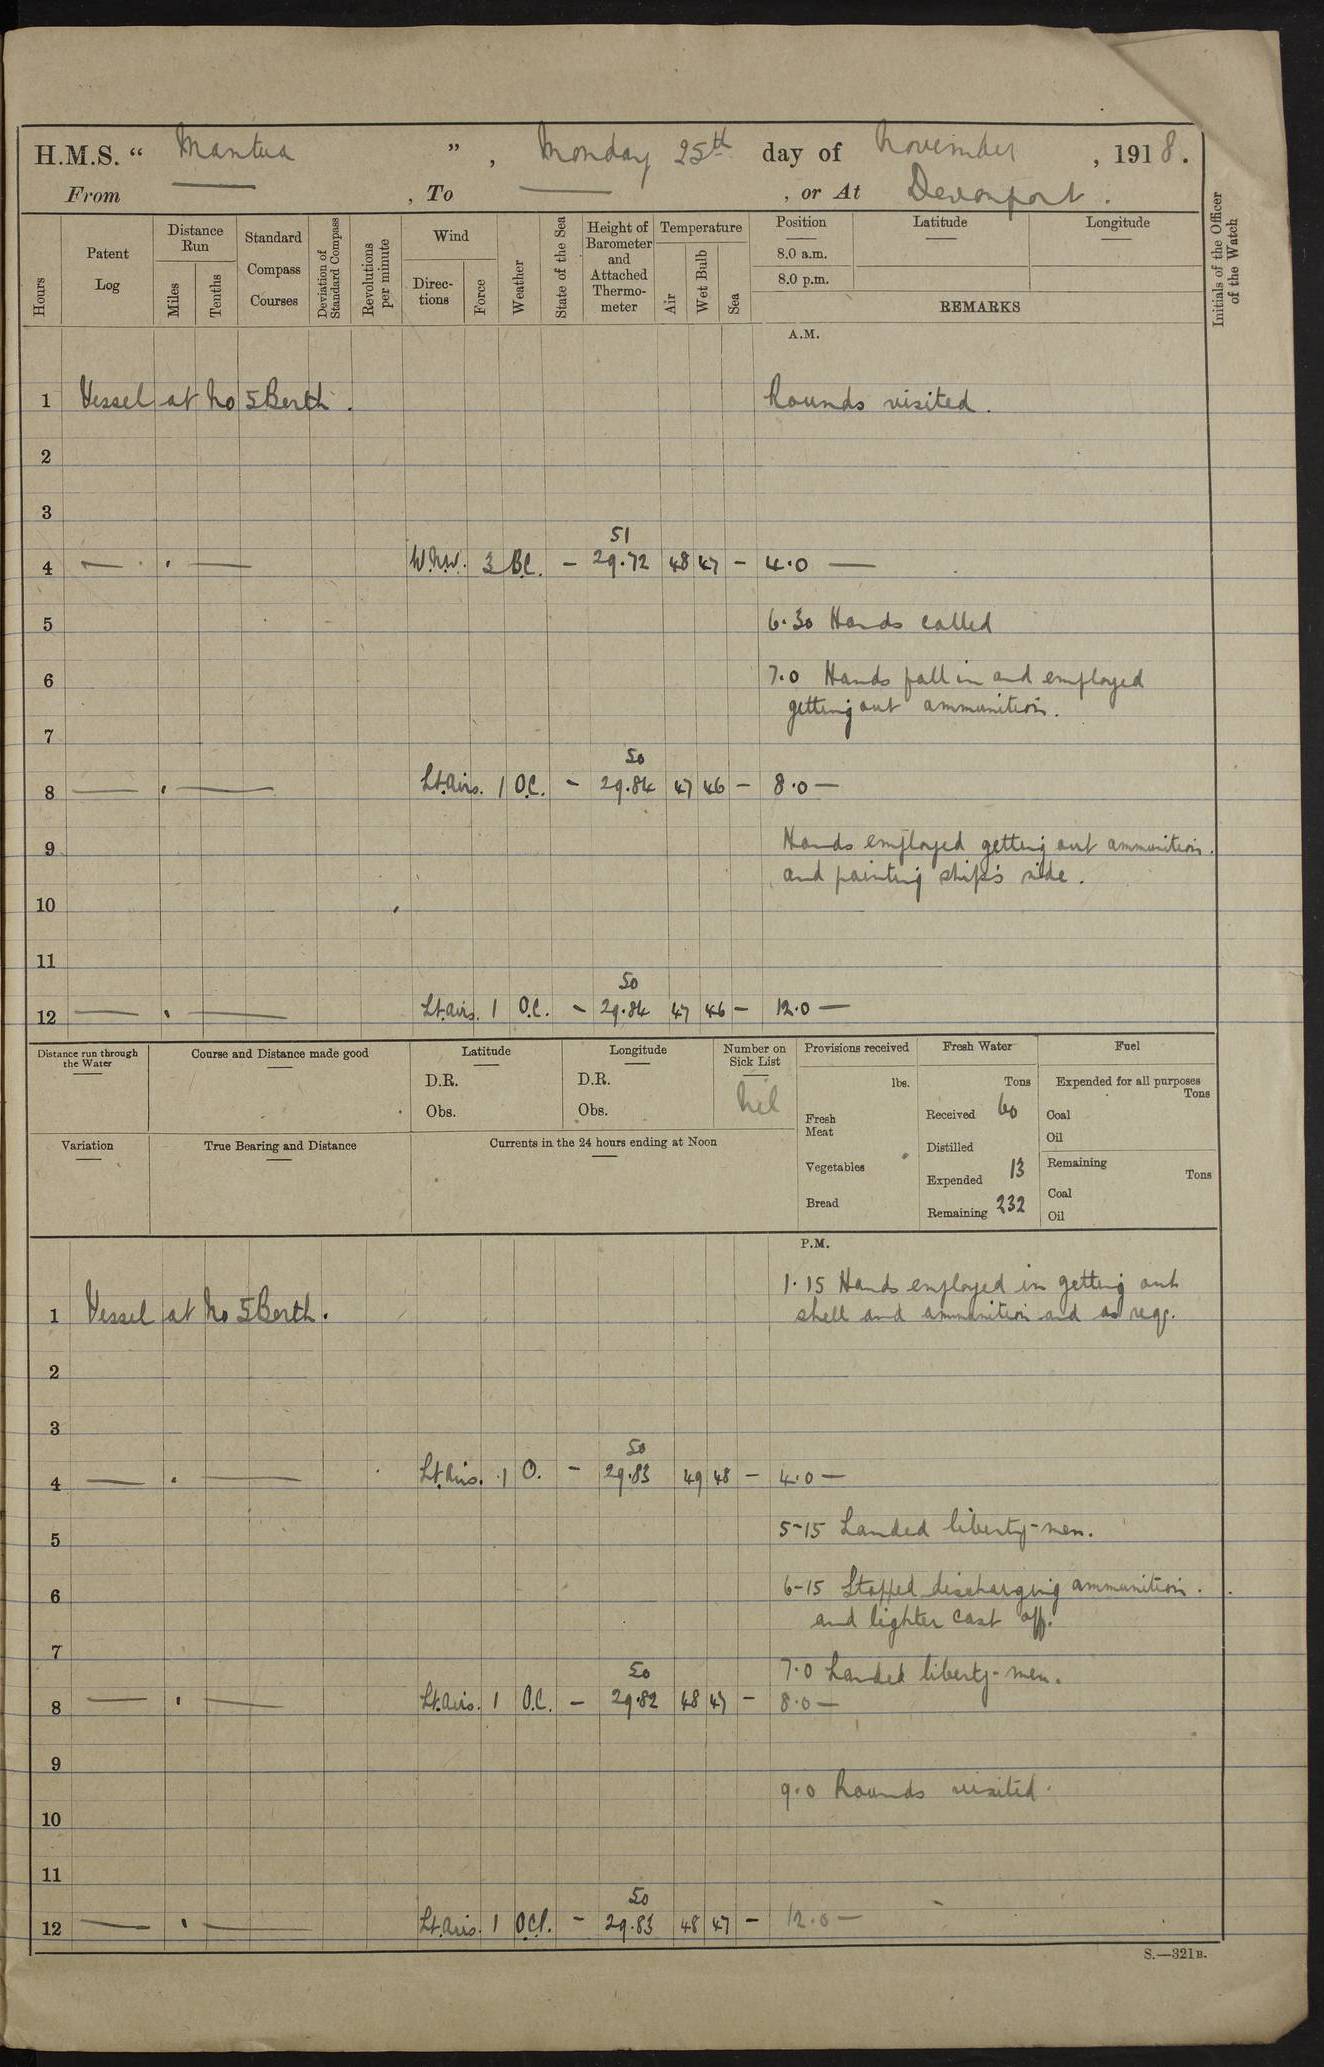 H.M.S. “ Mantua ” , Monday 25th day of November , 1918.
From — , To — , or At Devonport .
Hours
Patent Log
Distance Run
Miles
Tenths
Standard Compass Courses
Deviation of Standard Compass
Revolutions per minute
Wind
Direc-tions
Force
Weather
State of the Sea
Height of Barometer and Attached Thermo-meter
Temperature
Air
Wet Bulb
Sea
Position
8.0 a.m.
8.0 p.m.
Latitude
Longitude
REMARKS
Initials of the Officer of the Watch
A.M.
1 Vessel at No 5 Berth . Rounds visited .
2
3
51
4 — . — W.N.W. 3 B.C. – 29.72 48 47 – 4.0 —
5 6.30 Hands called
6 7.0 Hands fall in and employed
getting out ammunition.
7
50
8 — . — Lt.Airs. 1 O.C. – 29.84 47 46 – 8.0 —
9 Hands employed getting out ammunition.
and painting ship's side .
10
11
50
12 — . — Lt.Airs. 1 O.C. – 29.84 47 46 – 12.0 —
Distance run through the Water
Course and Distance made good
Latitude
D.R.
Obs.
Longitude
D.R.
Obs.
Number on Sick List
Nil
Provisions received
lbs.
Fresh Meat
Vegetables
Bread
Fresh Water
Tons
Received 60
Distilled
Expended 13
Remaining 232
Fuel
Expended for all purposes
Tons
Coal
Oil
Remaining
Tons
Coal
Oil
Variation
True Bearing and Distance
Currents in the 24 hours ending at Noon
P.M.
1.15 Hands employed in getting out
1 Vessel at No 5 Berth. shell and ammunition and as req.
2
3
50
4 — . — Lt.Airs. 1 O. – 29.83 49 48 – 4.0 —
5 5-15 Landed liberty-men.
6 6-15 Stopped discharging ammunition .
and lighter cast off.
7 7.0 Landed liberty-men.
50
8 — . — Lt.Airs. 1 O.C. – 29.82 48 47 – 8.0 —
9
9.0 Rounds visited.
10
11
50
12 — . — Lt.Airs. 1 O.C.P. – 29.83 48 47 – 12.0 —
S.—321B.